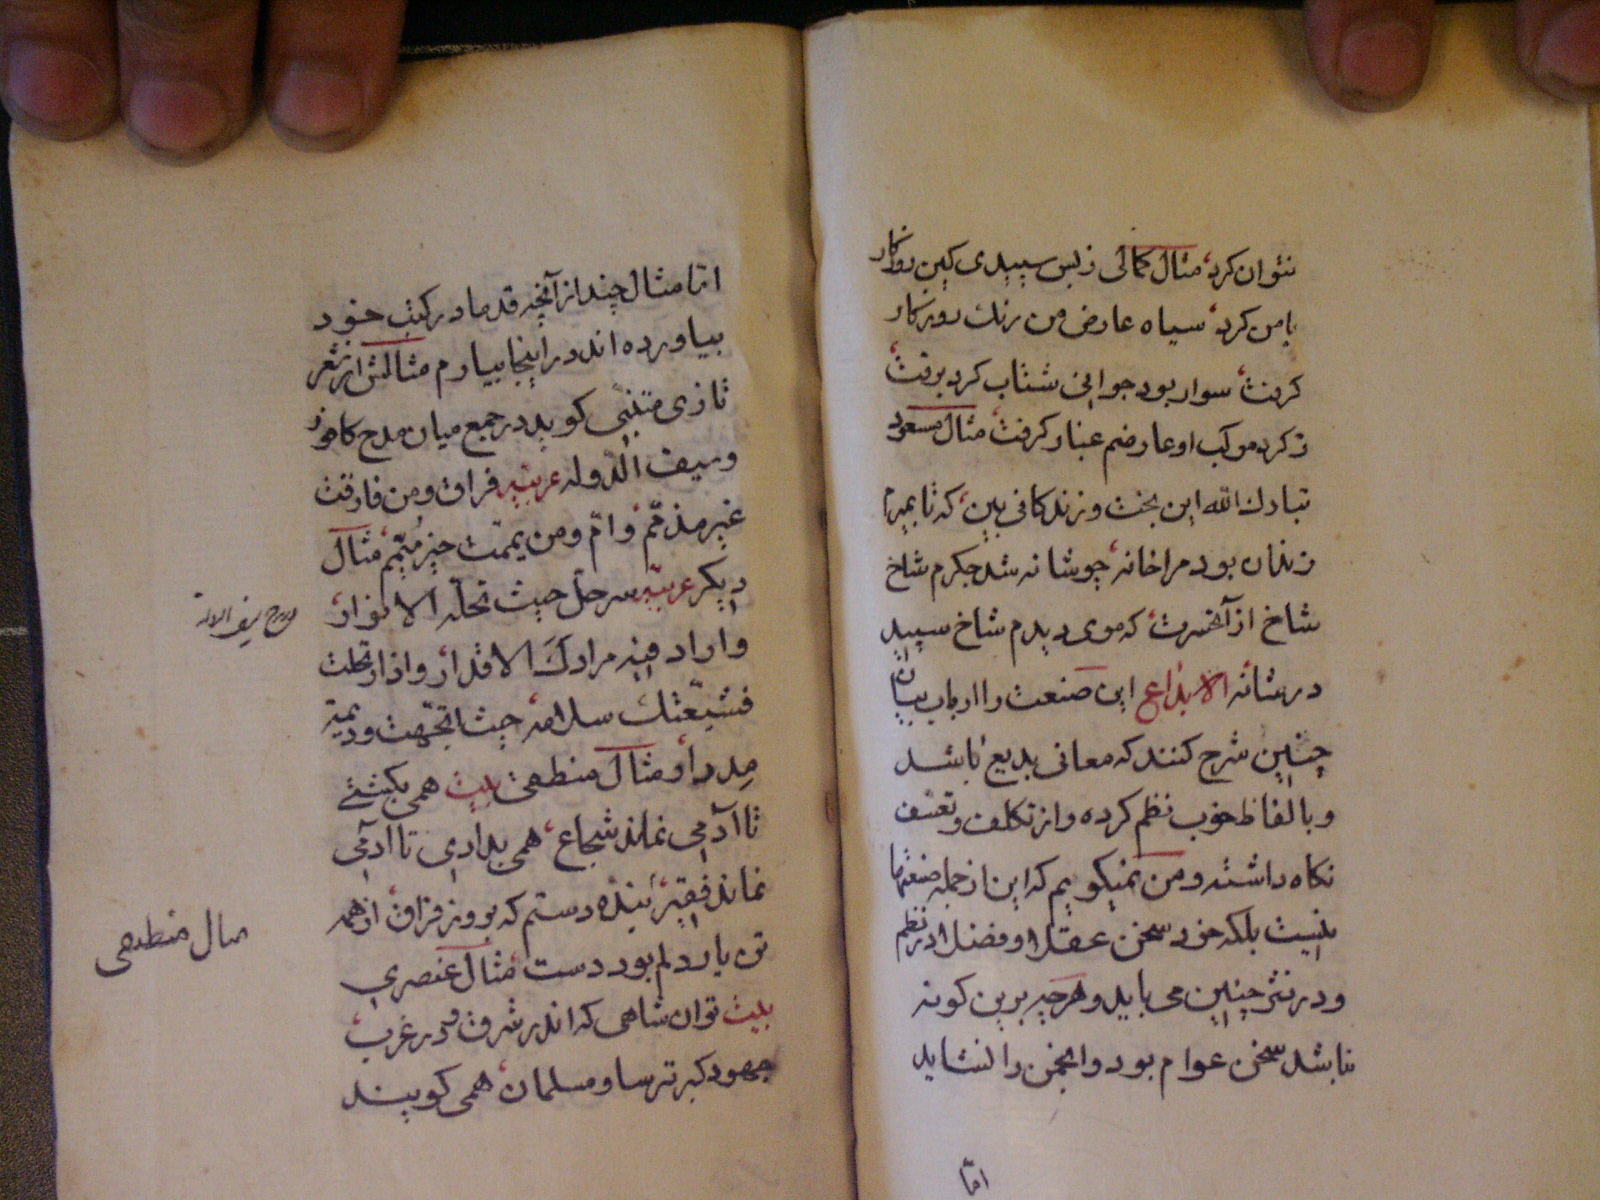 نتوان کرد، مثال کمالی ز بس سپیدی کین روزکار
بامن کرد، سیاه عارض من رنك روزکار
کرفت، سوار بود جوانی شتاب کرد برفت
ز کرد موکب او عارضم غبار کرفت، مثال مسعود
تبارك الله این بخت و زندکانی بین، که تا بمیرم
زندان بود مرا خانه، چو شانه شد جکرم شاخ
شاخ از آن حسرت، که موی دیدم شاخ سپید
در شانه الابداع این صنعت را ارباب بیان
چنین شرح کنند که معانی بدیع باشد
و بالفاظ خوب نظم کرده و از تکلف و تعسف
نکاه داشته و من میکویم که این از جمله صنعتها
نیست بلکه خود سخن عقلا و فضلا در نظم
و در نثر چنین می باید و هرچه برین کونه
نباشد سخن عوام بود و انجمن را نشاید
امّا
امّا مثال چند از آنچه قدما در کتب خود
بیاورده اند در اینجا بیارم مثالش از شعر
تازی متنبّی کوید در جمع میان مدح کافور
و سیف الدّوله عربیّه فراق و من فارقت
غیر مذمّم، و امّ و من یممت خیر میمّم، مثال
دیکر عربیّه سر حلّ حیث تحلّه الانوار،
و اراد فیه مرادك الاقدار، و اذا ارتحلت
فشیّعتك سلامه، حیث اتّجهت و دیمة
مدرار، مثال منطقی بیت همی بکشتی
تا آدمی نماند شجاع، همی بدادی تا آدمی
نماند فقیر، بنده دستم که بروز فراق، از همه
تن یار دلم بود دست، مثال عنصری
بیت توان شاهی که اندر شرق و در غرب،
جهود کبر ترسا و مسلمان، همی کویند
مدح سیف الدوله
مثال منطقی